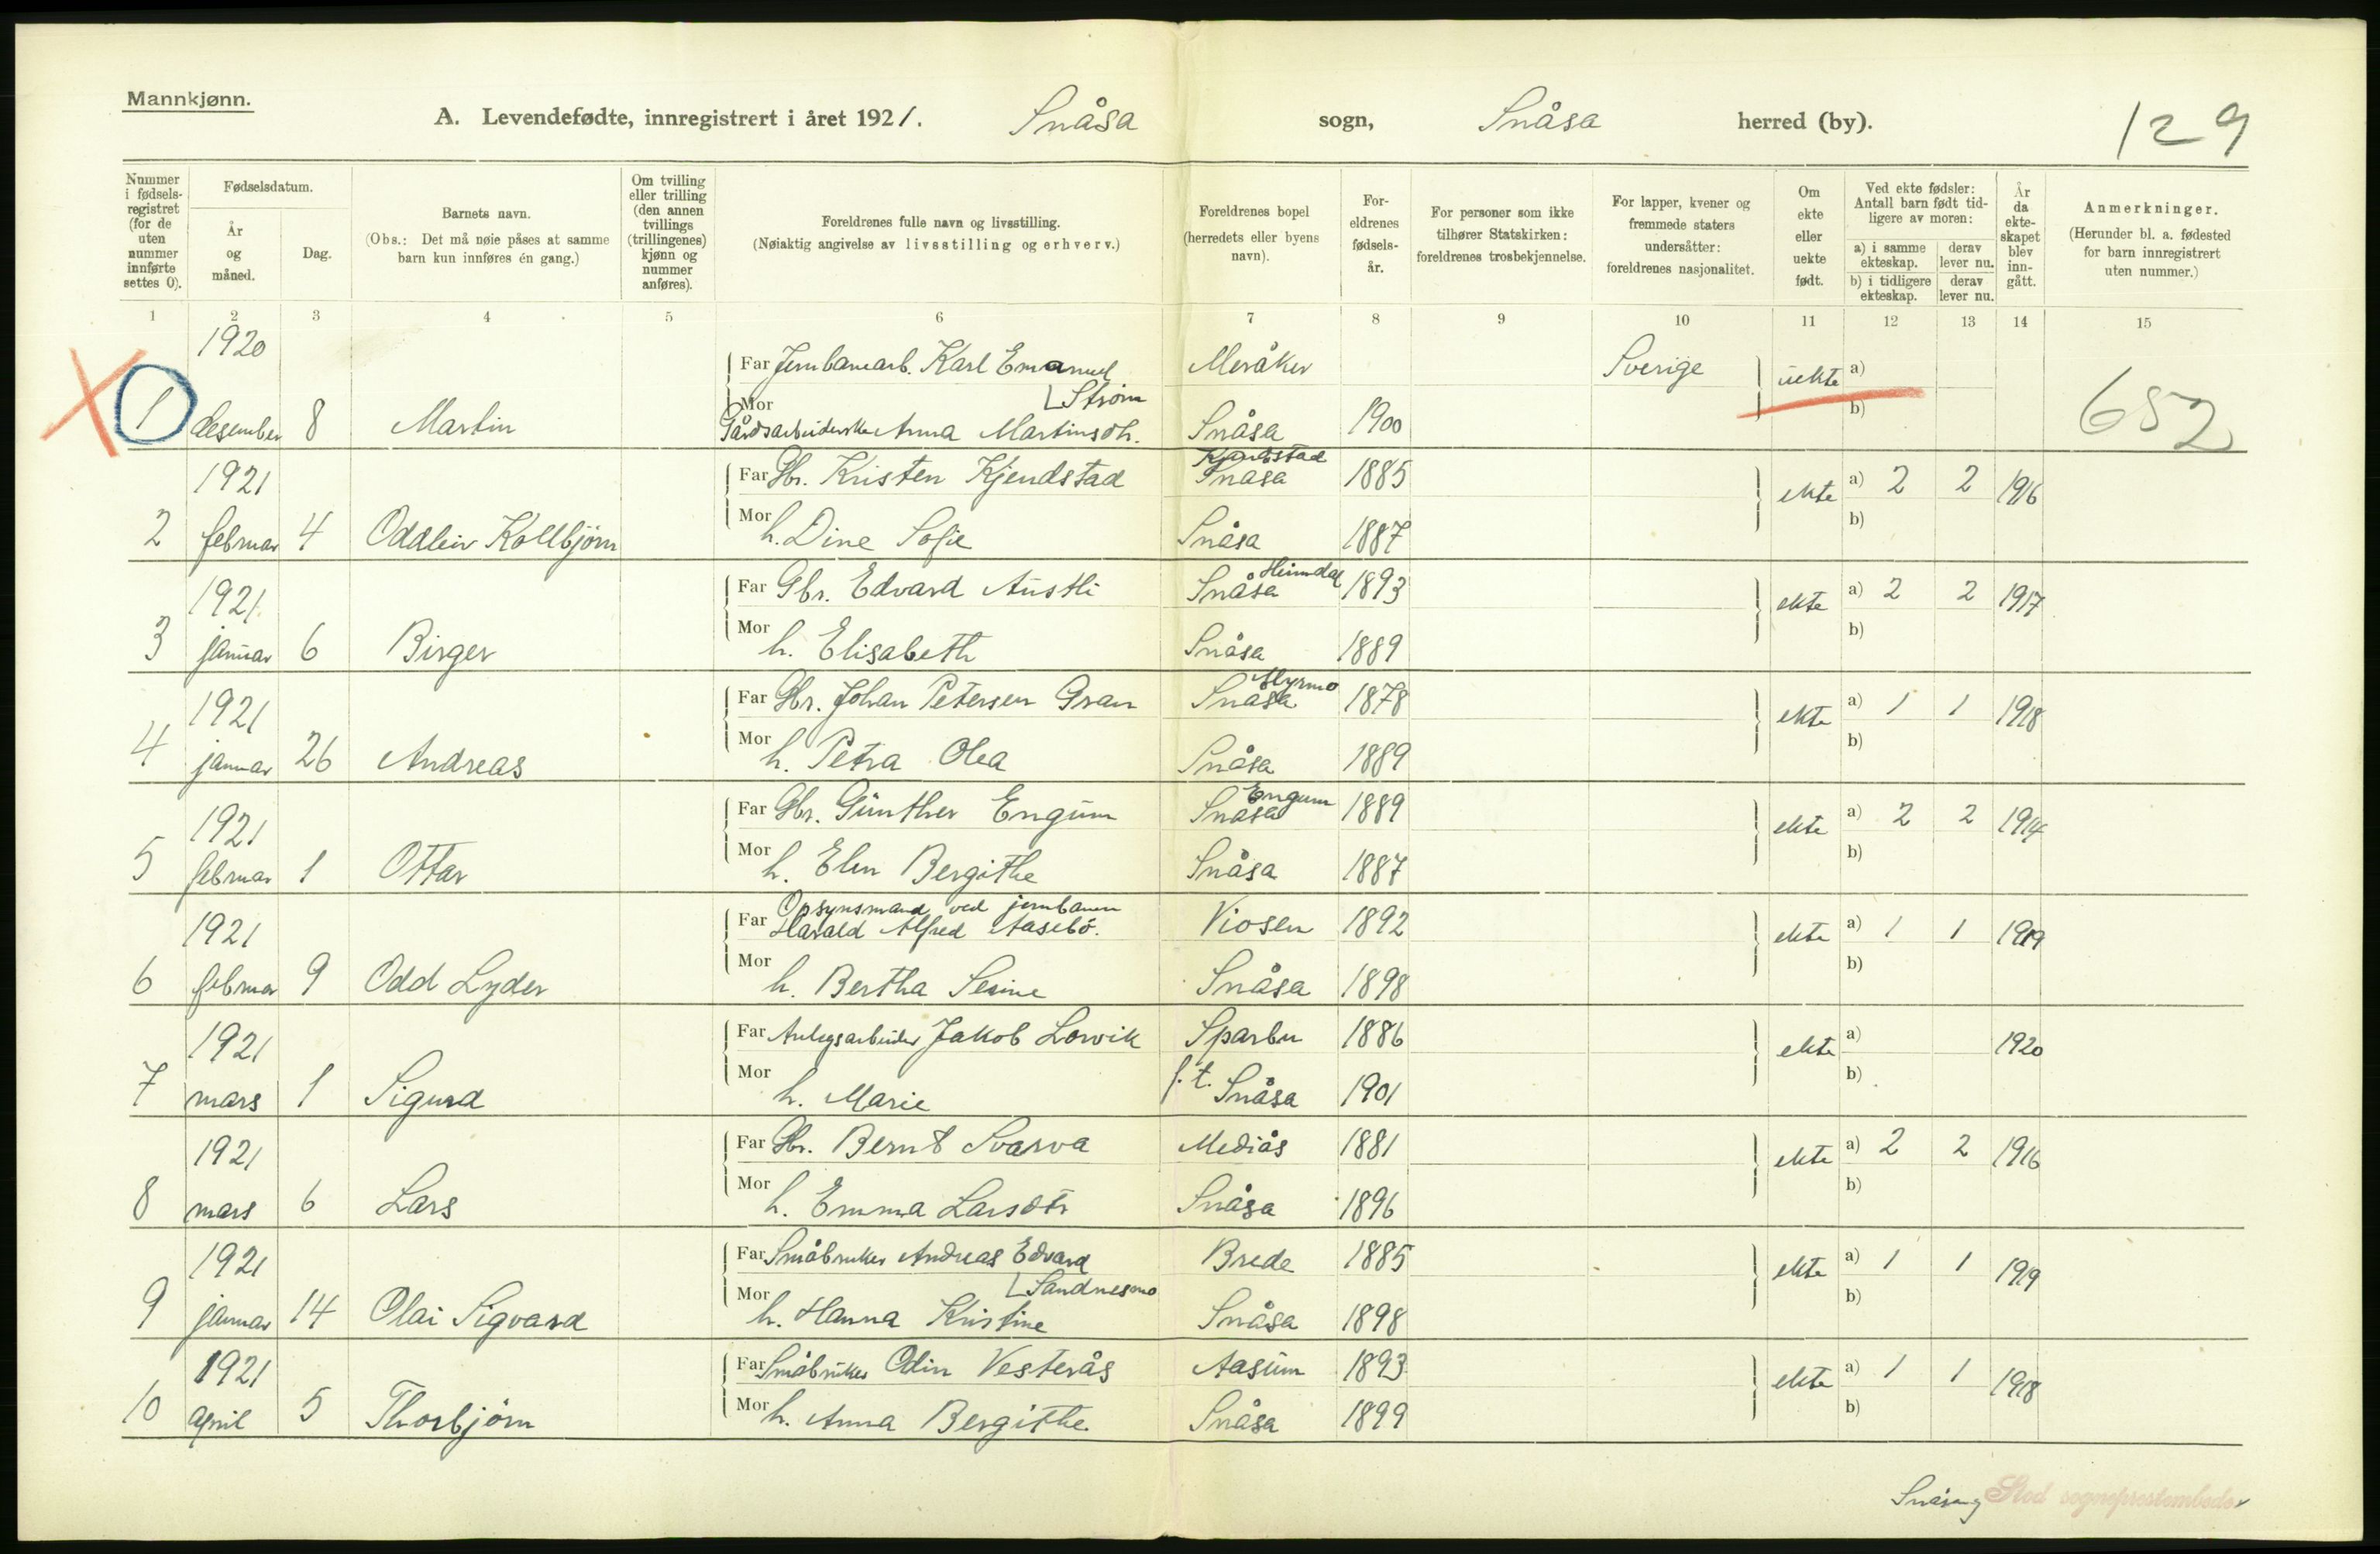 Mannkjønn.
A. Levendefødte, innregistrert i året 1921. Snåsa sogn, Snåsa herred (by). 129
Nummer i fødselsregistret (for de uten nummer innførte settes 0).
Fødselsdatum.
År og måned.
Dag.
Barnets navn.
(Obs.: Det må nøie påses at samme barn kun innføres én gang.)
Om tvilling eller trilling (den annen tvillings (trillingenes) kjønn og nummer anføres).
Foreldrenes fulle navn og livsstilling.
(Nøiaktig angivelse av livsstilling og erhverv.)
Foreldrenes bopel (herredets eller byens navn).
Foreldrenes fødselsår.
For personer som ikke tilhører Statskirken: foreldrenes trosbekjennelse.
For lapper, kvener og fremmede staters undersåtter: foreldrenes nasjonalitet.
Om ekte eller uekte født.
Ved ekte fødsler: Antall barn født tidligere av moren:
a) i samme ekteskap. derav lever nu.
b) i tidligere ekteskap. derav lever nu.
År da ekteskapet blev inngått.
Anmerkninger.
(Herunder bl. a. fødested for barn innregistrert uten nummer.)
1 2 3 4 5 6 7 8 9 10 11 12 13 14 15
1920
Far Jernbanearb. Karl Emanuel Meråker Sverige uekte a)
Mor [Strøm b)
1 desember 8 Martin Gårdsarbeiderske Anna Martinsdt. Snåsa 1900 652
Kjendstad
1921 Far Gbr. Kristen Kjendstad Snåsa 1885 ekte a) 2 2 1916
Mor b)
2 februar 4 Oddleiv Kollbjørn h. Dine Sofie Snåsa 1887
Heimdal
1921 Far Gbr. Edvard Austli Snåsa 1893 ekte a) 2 2 1917
Mor b)
3 januar 6 Birger h. Elisabeth Snåsa 1889
Myrmo
1921 Far Gbr. Johan Petersen Gran Snåsa 1878 ekte a) 1 1 1918
Mor b)
4 januar 26 Andreas h. Petra Olea Snåsa 1889
Engum
1921 Far Gbr. Günther Engum Snåsa 1889 ekte a) 2 2 1914
Mor b)
5 februar 1 Ottar h. Elen Bergithe Snåsa 1887
Opsynsmand ved jernbanen
1921 Far Harald Alfred Aasebö. Viosen 1892 ekte a) 1 1 1919
Mor b)
6 februar 9 Odd Lyder h. Bertha Serine Snåsa 1898
1921 Far Anlegsarbeider Jakob Lorvik Sparbu 1886 ekte a) 1920
Mor b)
7 mars 1 Sigurd h. Marie f. t. Snåsa 1901
1921 Far Gbr. Bernt Svarva Mediås 1881 ekte a) 2 2 1916
Mor b)
8 mars 6 Lars h. Emma Larsdtr Snåsa 1896
1921 Far Småbruker Andreas Edvard Brede 1885 ekte a) 1 1 1919
Mor [Sandnesmo b)
9 januar 14 Olai Sigvard h. Hanna Kristine Snåsa 1898
1921 Far Småbruker Odin Vesterås Aasum 1893 ekte a) 1 1 1918
10 april 5 Thorbjörn Mor h. Anna Bergithe Snåsa 1899 b)
Snåsa og Stod sogneprestembede